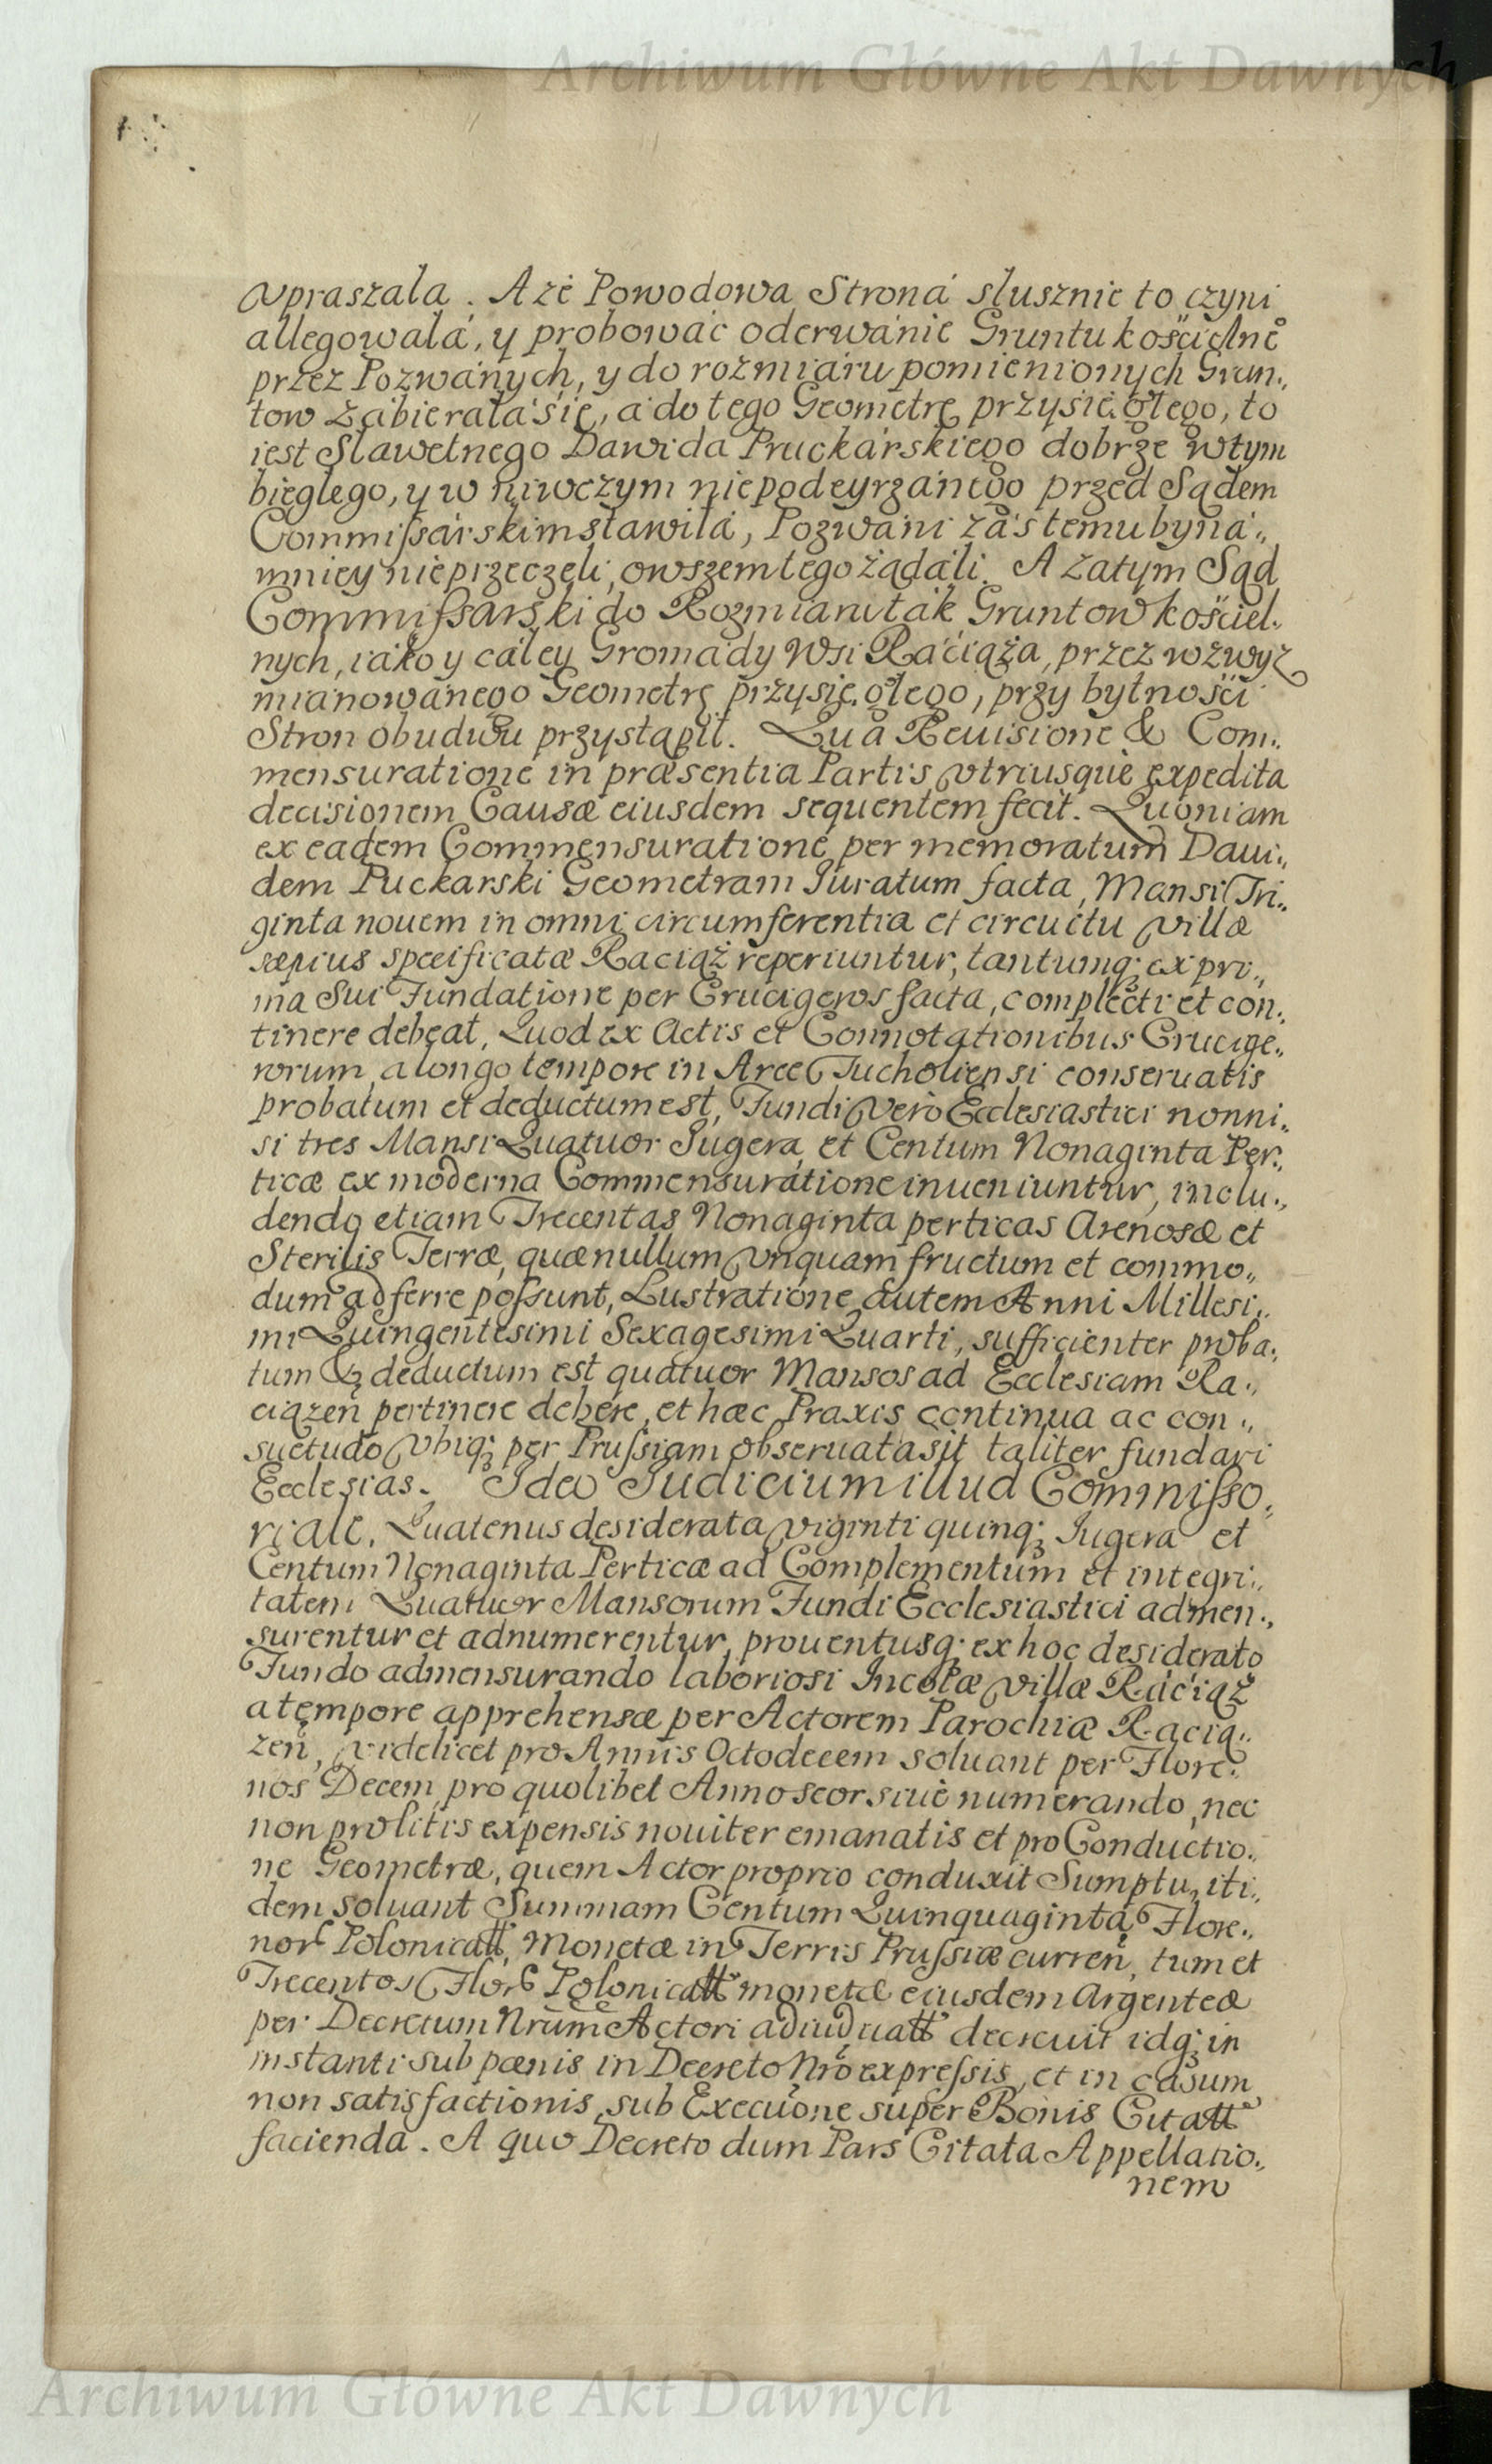 Archiwum Główne Akt Dawnych
vpraszala. A że Powodowa Strona slusznie to czyni
allegowala, y probować oderwanie Gruntu kościelne͠
przez Pozwanych, y do rozmiaru pomienionych Grun„
tow zabierala się, a do tego Geometrę przysięgłego, to
iest Slawetnego Dawida Pruckarskiego dobrze w tym
bieglego, y w niwczym niepodeyrzanego przed Sądem
Commissarskim stawila, Pozwani zaś temu byna„
mniey nieprzeczeli, owszem tego żądali. A zatym Sąd
Commissarski do Rozmiaru tak Gruntow kościel„
nych, iako y caley Gromady Wsi Raciąża, przez wzwyż
mianowanego Geometrę przysięgłego, przy bytności
Stron obudwu przystąpił. Qua Reuisione & Com„
mensuratione in præsentia Partis vtriusque expedita
decisionem Causæ eiusdem sequentem fecit. Quoniam
ex eadem Commensuratione per memoratum Daui„
dem Puckarski Geometram Juratum facta, Mansi Tri„
ginta nouem in omni circumferentia et circuitu villæ
sæpius specificatæ Raciąż reperiuntur, tantumq; ex pri„
ma Sui Fundatione per Crucigeros facta, complecti et con„
tinere debeat, Quod ex Actis et Connotationibus Crucige„
rorum a longo tempore in Arce Tucholiensi conseruatis
probatum et deductum est, Fundi vero Ecclesiastici nonni„
si tres Mansi Quatuor Jugera, et Centum Nonaginta Per„
ticæ ex moderna Commensuratione inueniuntur, inclu„
dendo etiam Trecentas Nonaginta perticas Arenosæ et
Sterilis Terræ, quæ nullum vnquam fructum et commo„
dum adferre possunt, Lustratione autem Anni Millesi„
mi Quingentesimi Sexagesimi Quarti, sufficienter proba„
tum & deductum est quatuor Mansos ad Ecclesiam Ra„
ciązen̄ pertinere debere, et hæc Praxis continua ac con„
suetudo vbiq; per Prussiam obseruata sit taliter fundari
Ecclesias. Ideo Judicium illud Commisso„
riale, Quatenus desiderata viginti quinq; Jugera et
Centum Nonaginta Perticæ ad Complementum et integri„
tatem Quatuor Mansorum Fundi Ecclesiastici admen„
surentur et adnumerentur, prouentusq; ex hoc desiderato
Fundo admensurando laboriosi Incolæ villæ Raciąż
a tempore apprehensæ per Actorem Parochiæ Racią„
zen̄, videlicet pro Annis Octodecem soluant per Flore„
nos Decem pro quolibet Anno seorsiue numerando, nec
non pro litis expensis nouiter emanatis et pro Conductio„
ne Geometræ, quem Actor proprio conduxit Sumptu, iti„
dem soluant Summam Centum Quinquaginta Flore„
nor Polonicatt, Monetæ in Terris Prussiæ curren̄, tum et
Trecentos Flor Polonicatt monetæ eiusdem Argenteæ
per Decretum Nrum Actori adiudicatt decreuit idq; in
instanti sub pœnis in Decreto Nro expressis, et in casum
non satisfactionis, sub Execuone super Bonis Citatt
facienda. A quo Decreto dum Pars Citata Appellatio„
nem
Archiwum Główne Akt Dawnych